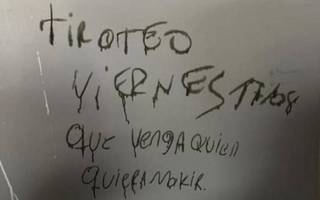 TIROTEO
ViERNES
QUE VENGA QUIEN
QUIERA MORIR.